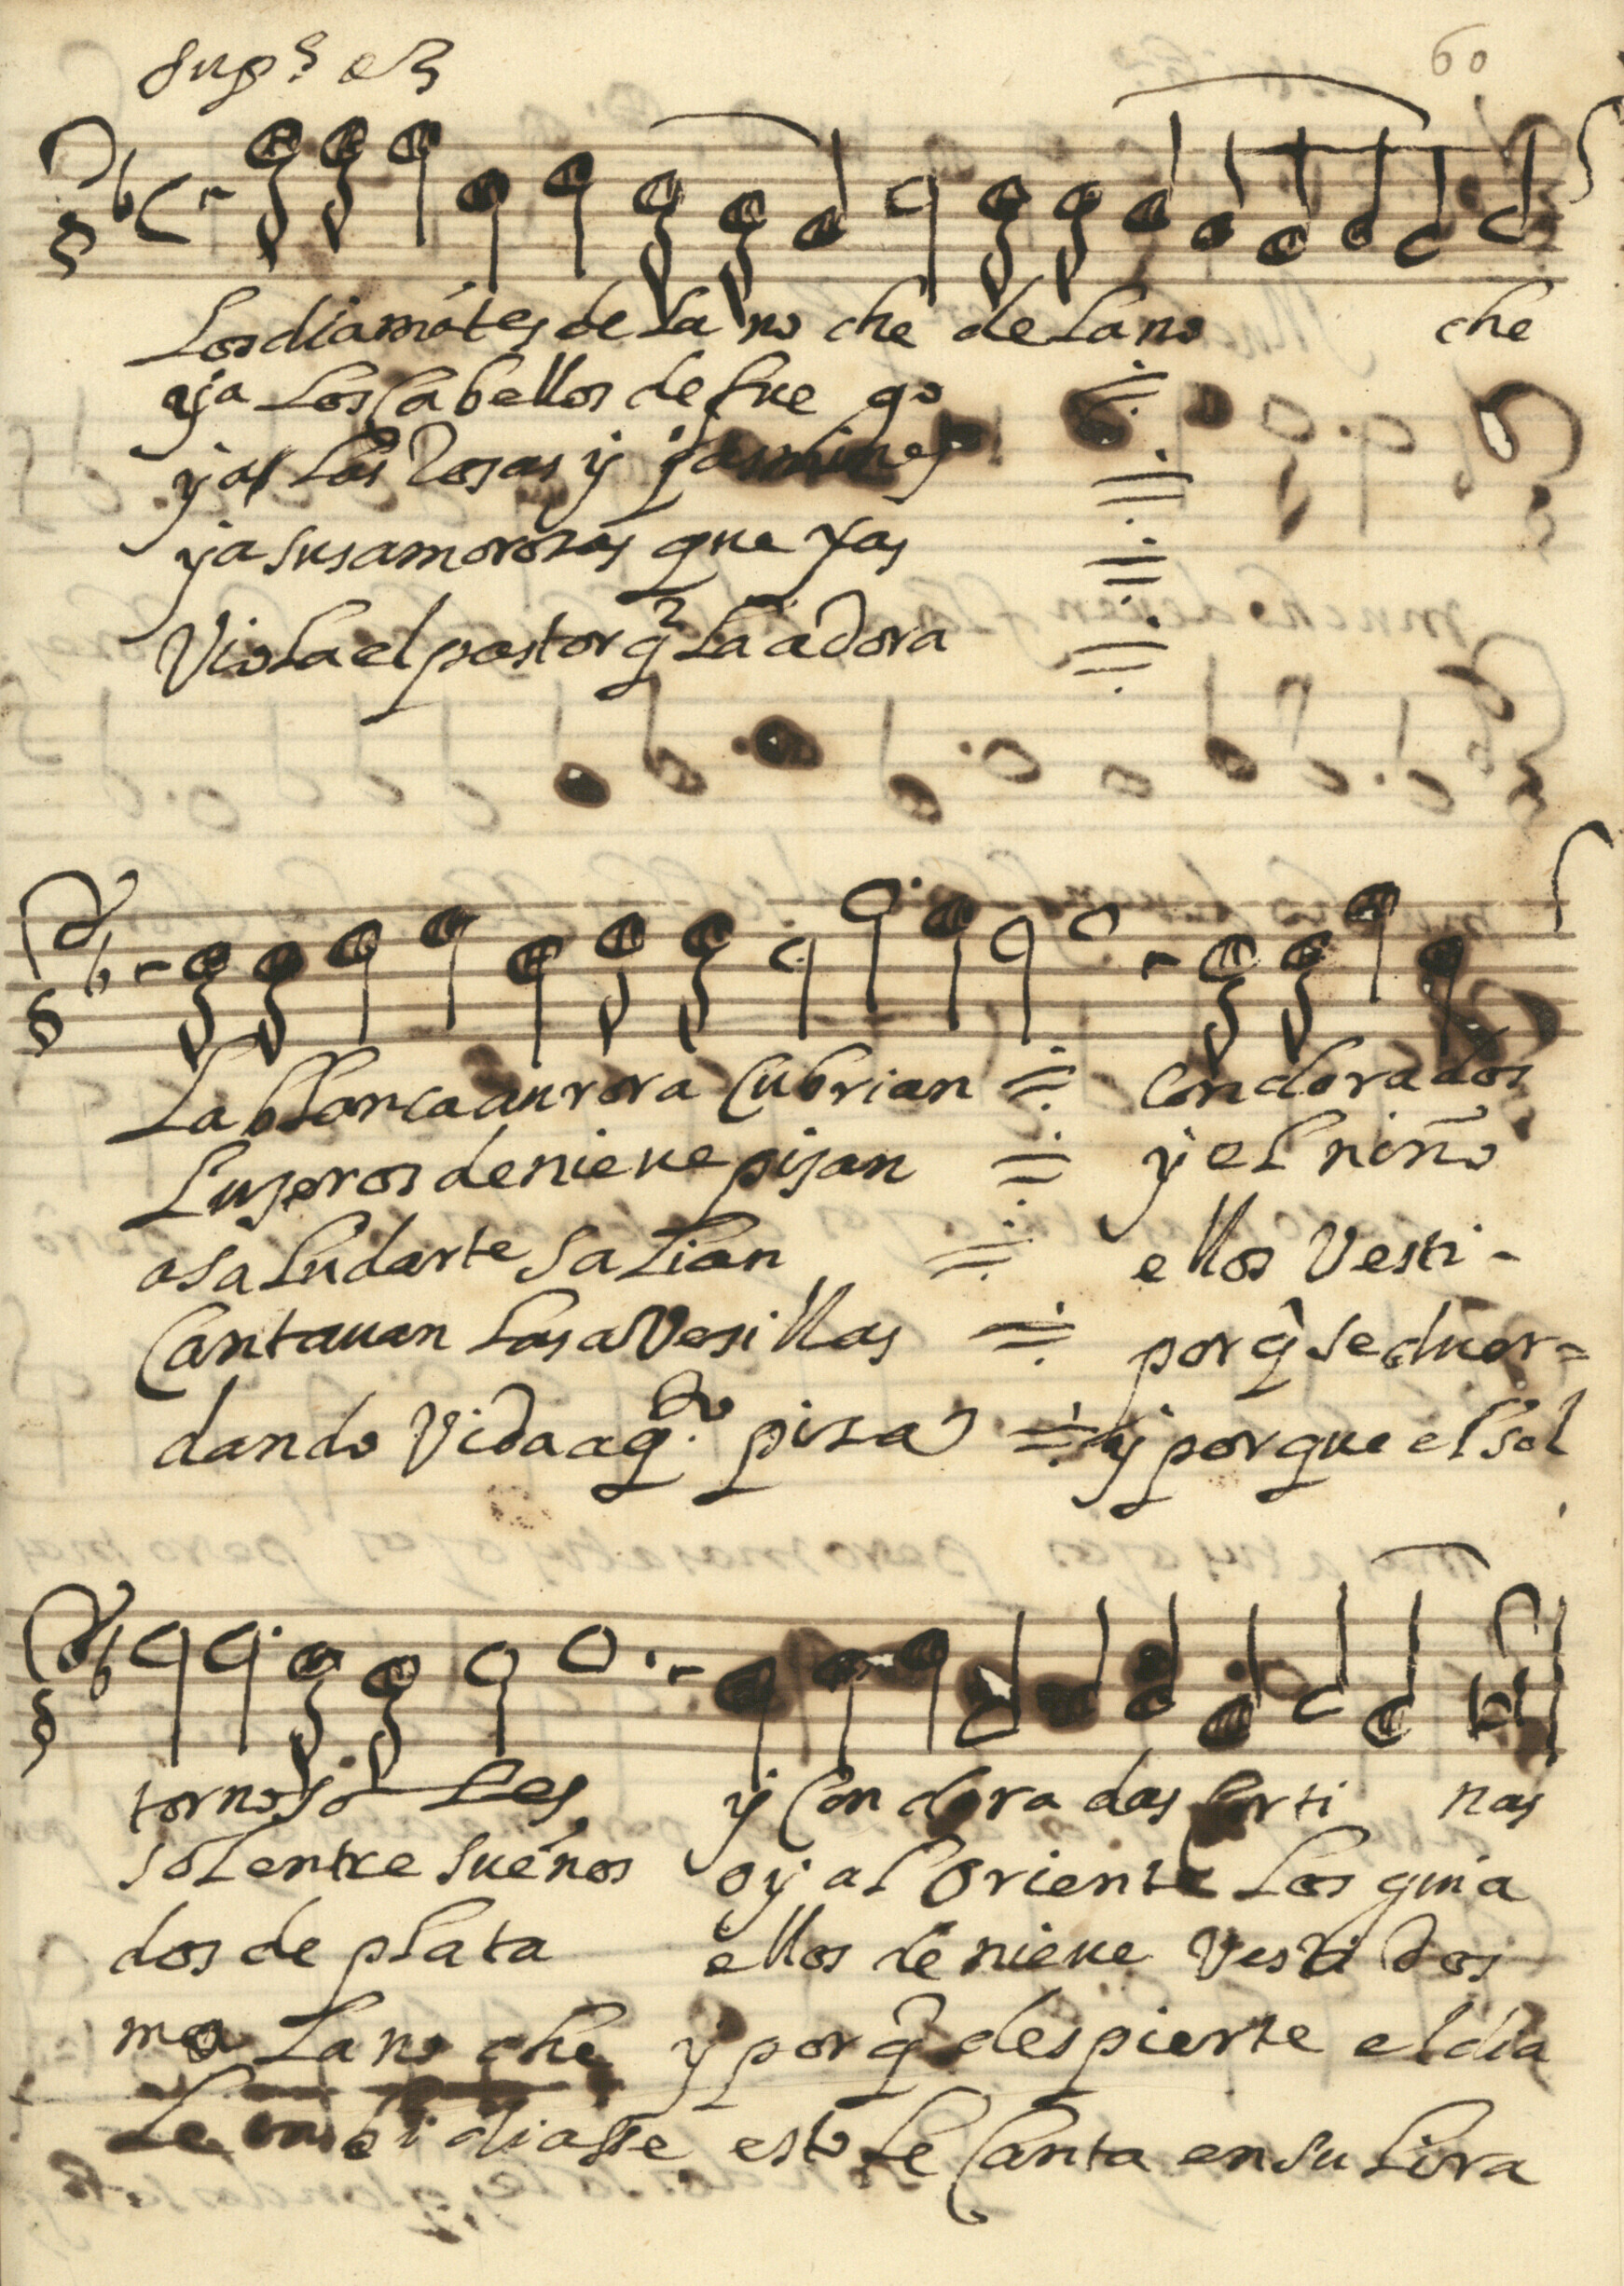 60
Los diamātes de La no che de La no che
y a Los Cabellos de fue go
y a Las Rosas y jasmines
y a sus amorosas que xas
Viola el pastor q̃ La adora
La blanca aurora Cubrian Con dorados
Luzeros de nieue pisan y el niño
a saludarte salian ellos Vesti-
Cantauan Las aVesillas porq̃ se duer=
dando Vida a q.to pisa y porque el sol
tornasoles y Con doradas Corti nas
sol entre sueños oy al Oriente Los guia
dos de plata ellos de nieue Vestidos
ma La noche y porq̃ despierte el dia
Le enbidiasse esto Le Canta en su Lira